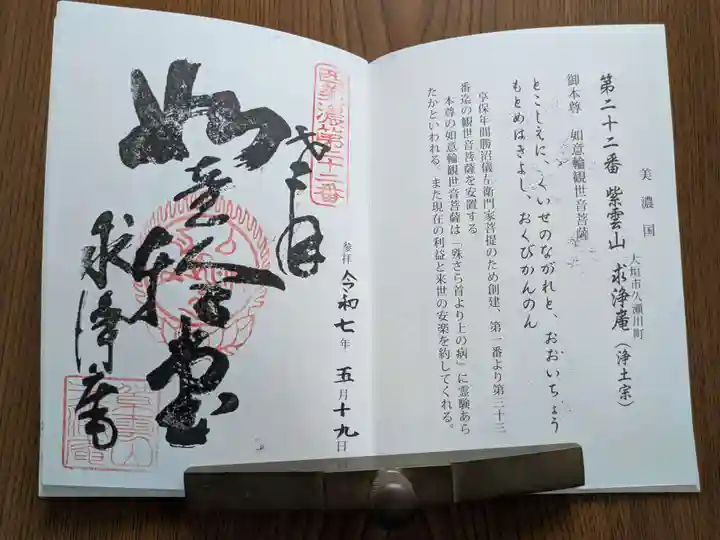 美濃国
大垣市久瀬川町
第二十二番 紫雲山 求浄庵(浄土宗)
御本尊 如意輪観世音菩薩
とこしえに、くいせのながれと、おおいちょう
もとめはきよし、おくびかんのん
享保年間勝沼儀左衛門家菩提のため創建、第一番より第三十三
番迄の観世音菩薩を安置する
本尊の如意輪観世音菩薩は「殊さら首より上の病」に霊験あら
たかといわれる。また現在の利益と来世の安楽を約してくれる。
西美濃第二十二番
如意輪堂
求浄庵
参拝 令和七年 五月十九日